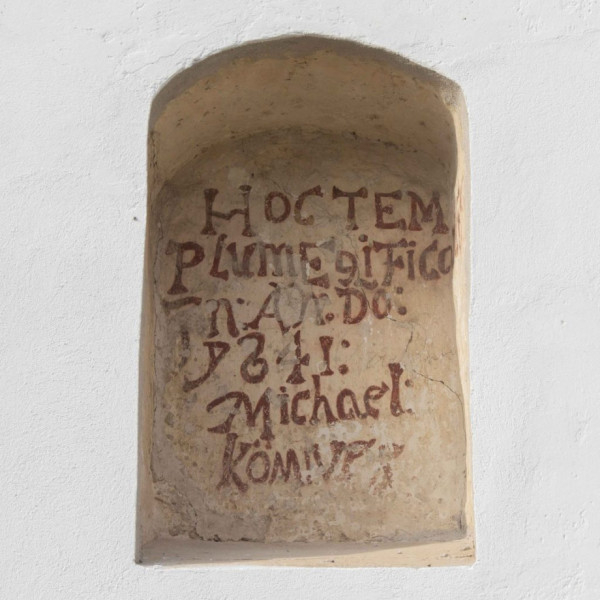 HOC TEM
PLUM EgiFico
n: AÑ: DO:
1841:
Michael: